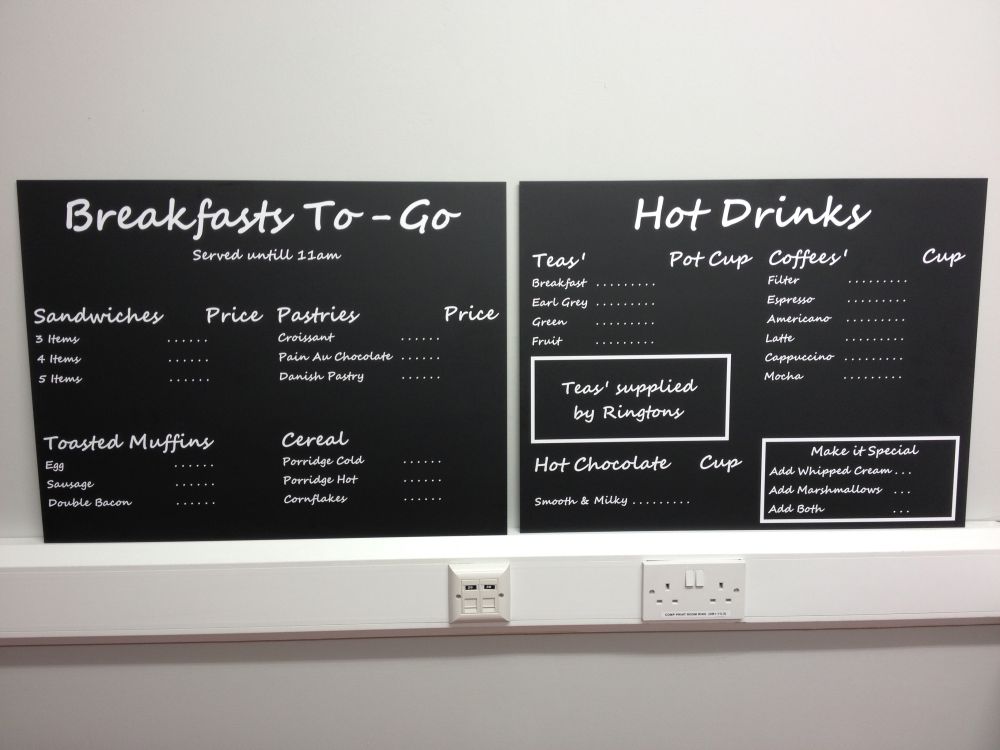 Breakfasts To - Go
Served untill 11am
Sandwiches Price
3 Items ......
4 Items ......
5 Items ......
Pastries Price
Croissant ......
Pain Au Chocolate ......
Danish Pastry ......
Toasted Muffins
Egg ......
Sausage ......
Double Bacon ......
Cereal
Porridge Cold ......
Porridge Hot ......
Cornflakes ......
Hot Drinks
Teas' Pot Cup
Breakfast .........
Earl Grey .........
Green .........
Fruit .........
Teas' supplied
by Ringtons
Hot Chocolate Cup
Smooth & Milky .........
Coffees' Cup
Filter .........
Espresso .........
Americano .........
Latte .........
Cappuccino .........
Mocha .........
Make it Special
Add Whipped Cream ...
Add Marshmallows ...
Add Both ...